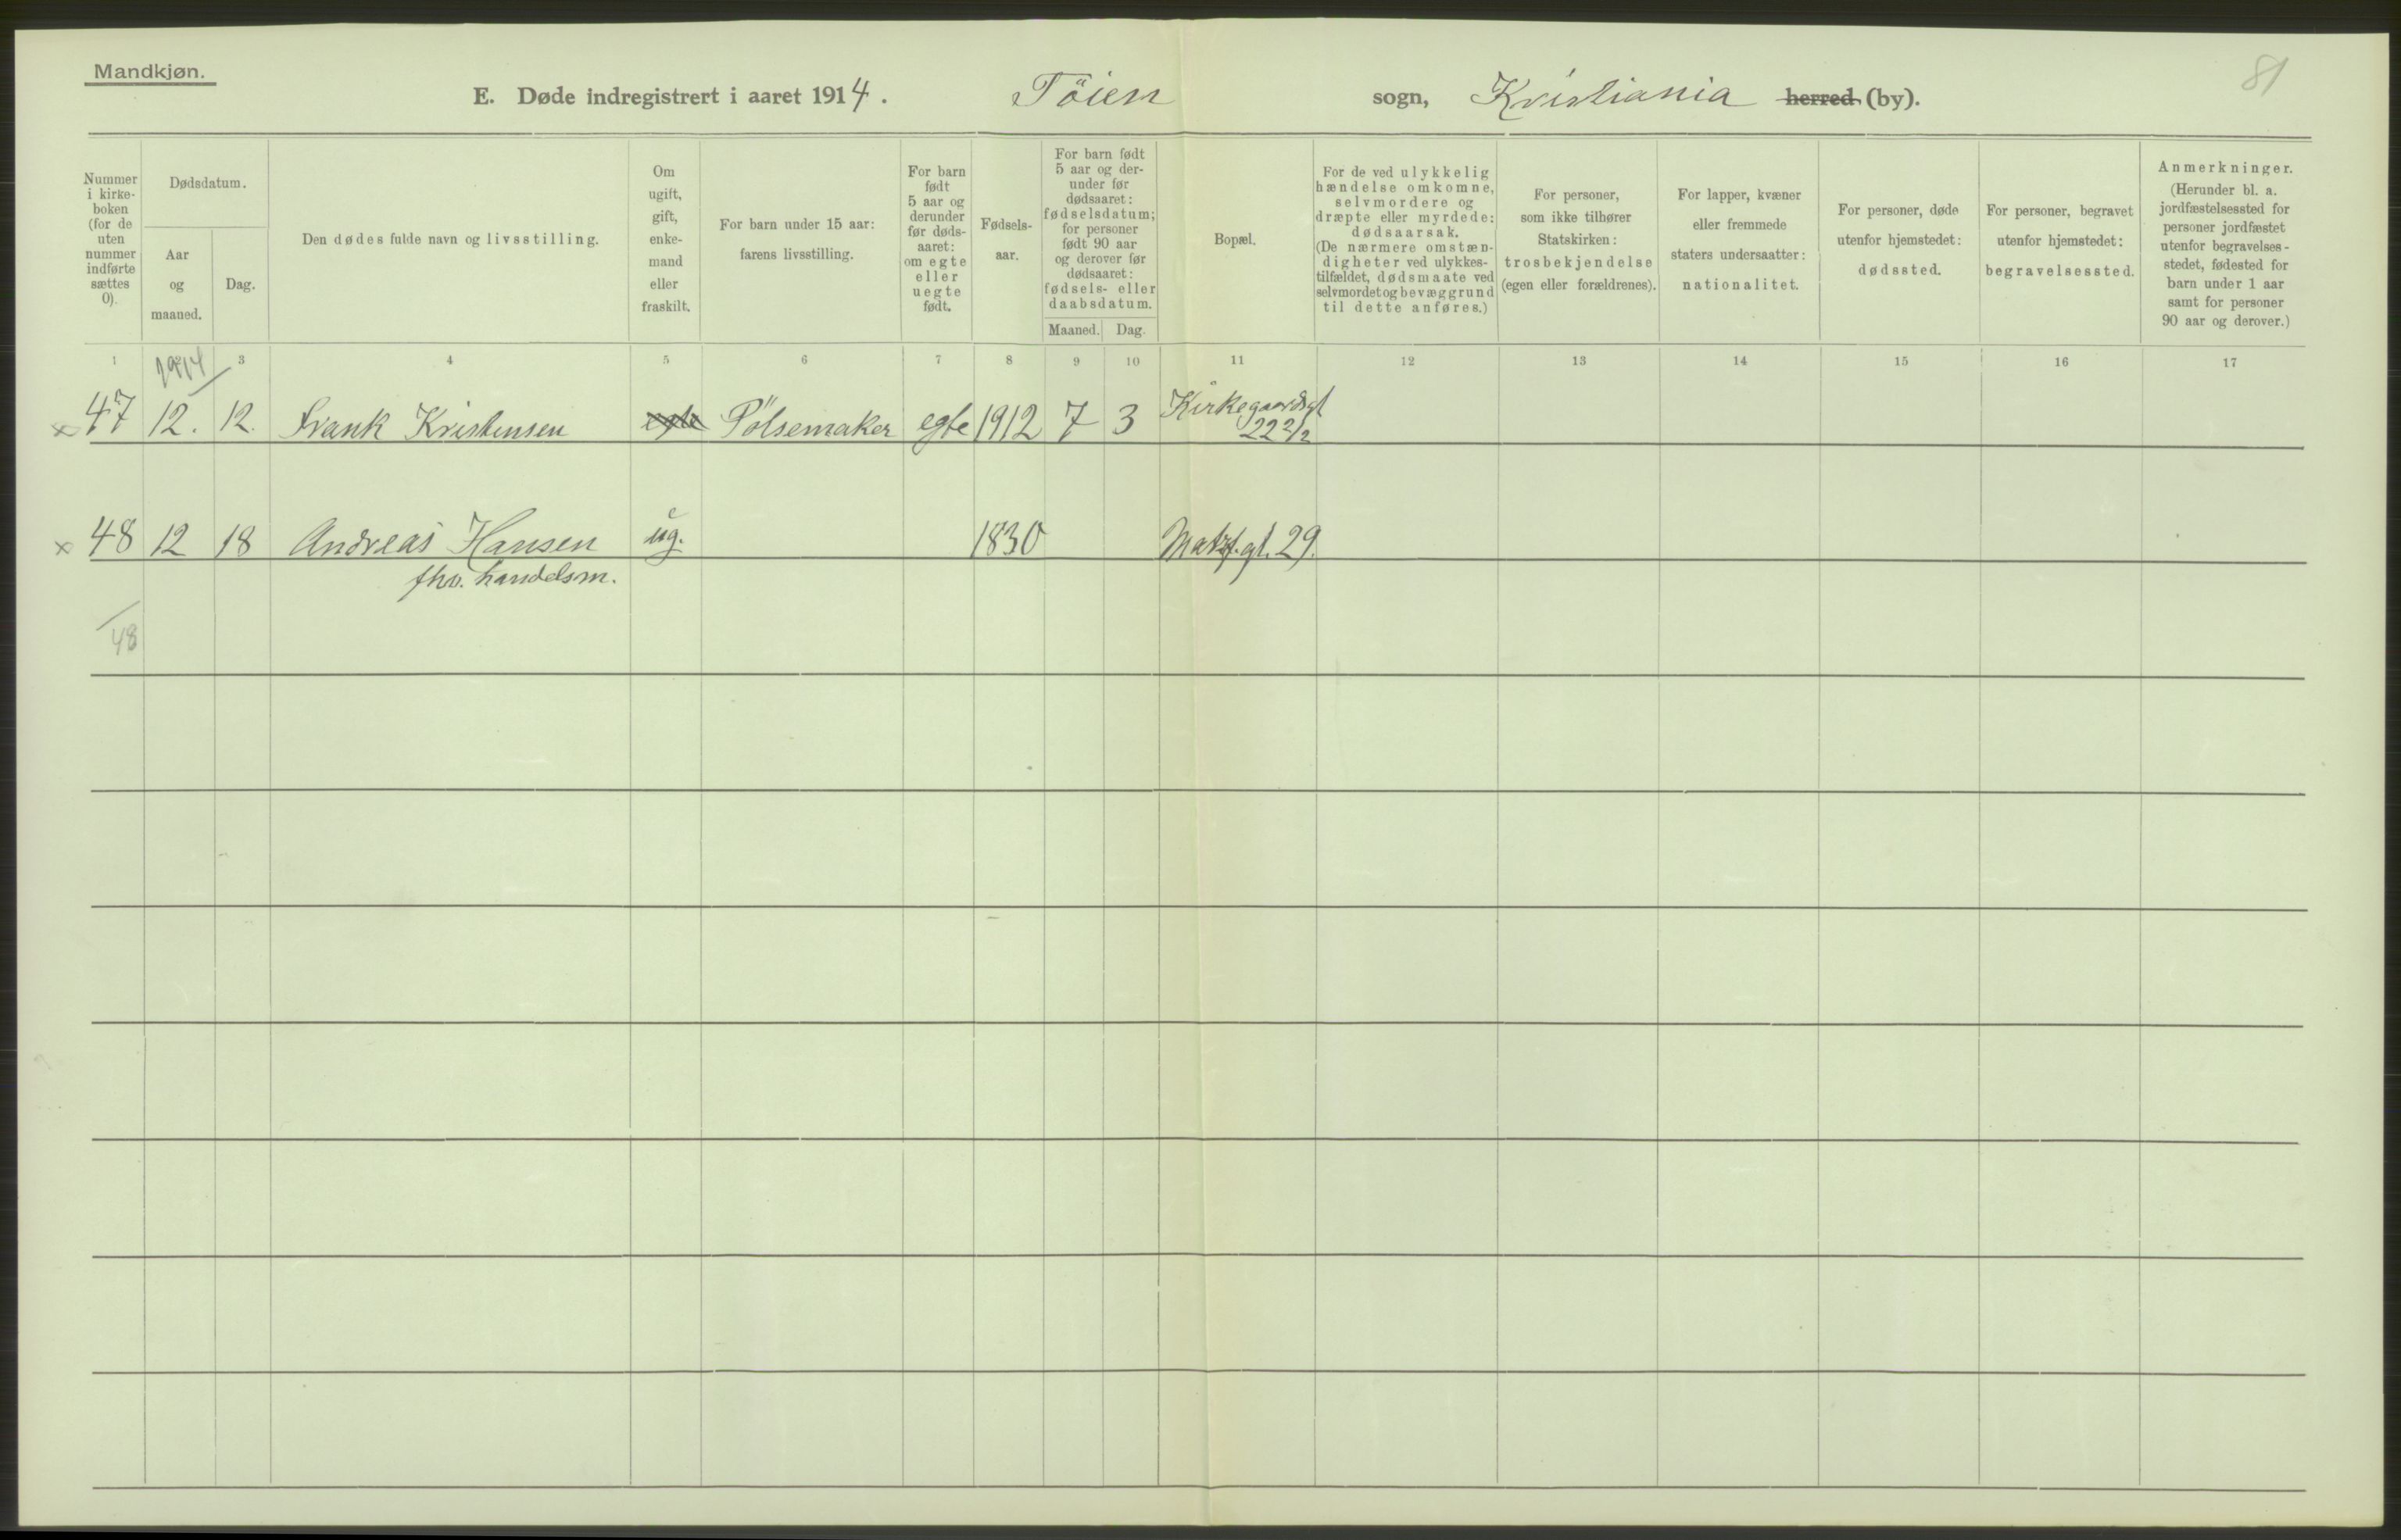 Mandkjøn.
81
E. Døde indregistrert i aaret 1914. Töien sogn, Kristiania herred (by).
Nummer
i kirke-
boken
(for de
uten
nummer
indførte
sættes
0).
Dødsdatum.
Aar
og
maaned.
Dag.
Den dødes fulde navn og livsstilling.
Om
ugift,
gift,
enke-
mand
eller
fraskilt.
For barn under 15 aar:
farens livsstilling.
For barn
født
5 aar og
derunder
før døds-
aaret:
om egte
eller
uegte
født.
Fødsels-
aar.
For barn født
5 aar og der-
under før
dødsaaret:
fødselsdatum;
for personer
født 90 aar
og derover før
dødsaaret:
fødsels- eller
daabsdatum.
Maaned. Dag.
Bopæl.
For de ved ulykkelig
hændelse omkomne,
selvmordere og
dræpte eller myrdede:
dødsaarsak.
(De nærmere omstæn-
digheter ved ulykkes-
tilfældet, dødsmaate ved
selvmordet og bevæggrund
til dette anføres.)
For personer,
som ikke tilhører
Statskirken:
trosbekjendelse
(egen eller forældrenes).
For lapper, kvæner
eller fremmede
staters undersaatter:
nationalitet.
For personer, døde
utenfor hjemstedet:
dødssted.
For personer, begravet
utenfor hjemstedet:
begravelsessted.
Anmerkninger.
(Herunder bl. a.
jordfæstelsessted for
personer jordfæstet
utenfor begravelses-
stedet, fødested for
barn under 1 aar
samt for personer
90 aar og derover.)
1 3 4 5 6 7 8 9 10 11 12 13 14 15 16 17
1914
x 47 12. 12. Frank Kristensen egte Pölsemaker egte 1912 7 3 Kirkegaardsgt
22 2/2
x 48 12 18 Andreas Hansen ug. 1830 29.
fhv. handelsm.
48